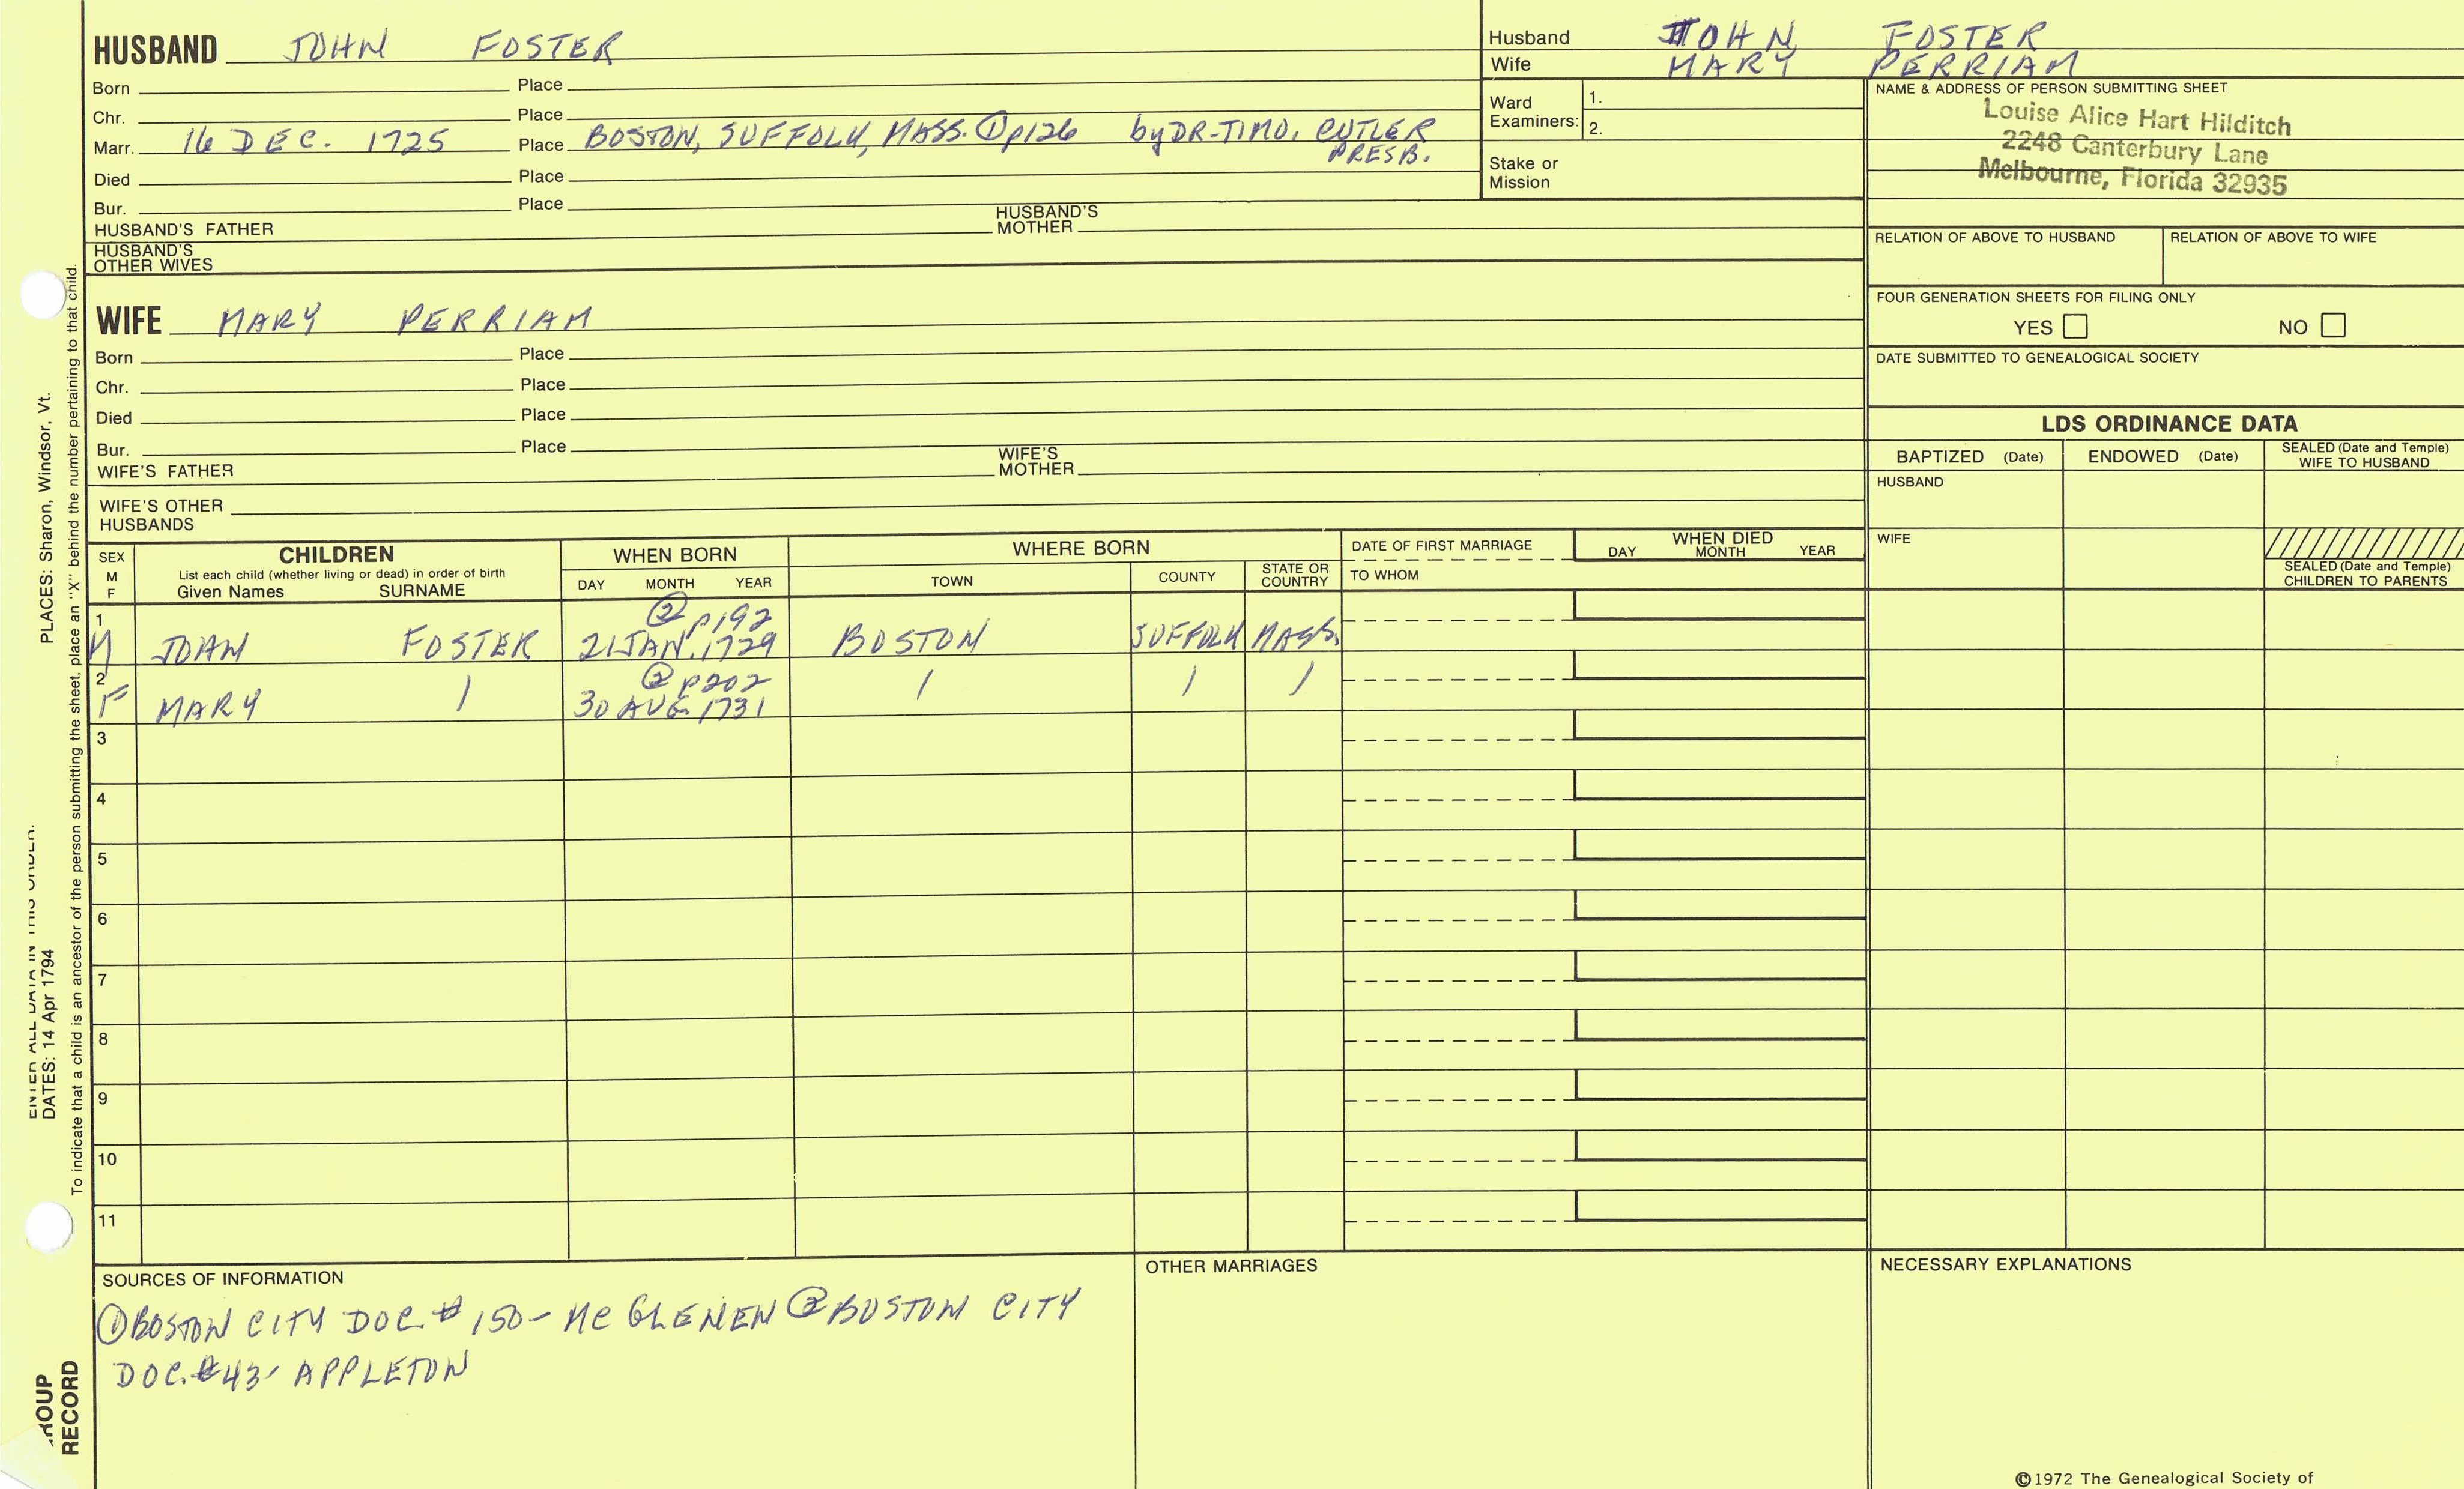 HUSBAND JOHN FOSTER
Born Place
Chr. Place
Marr. 16 DEC. 1725 Place BOSTON, SUFFOLK, MASS. ① p126 by DR. TIMO. CUTLER
PRESB.
Died Place
Bur. Place
HUSBAND'S FATHER HUSBAND'S MOTHER
HUSBAND'S
OTHER WIVES
Husband JOHN FOSTER
Wife MARY PERRIAM
Ward
Examiners:
1.
2.
Stake or
Mission
NAME & ADDRESS OF PERSON SUBMITTING SHEET
Louise Alice Hart Hilditch
2248 Canterbury Lane
Melbourne, Florida 32935
RELATION OF ABOVE TO HUSBAND RELATION OF ABOVE TO WIFE
FOUR GENERATION SHEETS FOR FILING ONLY
YES NO
DATE SUBMITTED TO GENEALOGICAL SOCIETY
WIFE MARY PERRIAM
Born Place
Chr. Place
Died Place
Bur. Place
WIFE'S FATHER WIFE'S MOTHER
WIFE'S OTHER
HUSBANDS
LDS ORDINANCE DATA
BAPTIZED (Date) ENDOWED (Date) SEALED (Date and Temple)
WIFE TO HUSBAND
HUSBAND
WIFE
SEALED (Date and Temple)
CHILDREN TO PARENTS
SEX
M
F
CHILDREN
List each child (whether living or dead) in order of birth
Given Names SURNAME
WHEN BORN
DAY MONTH YEAR
WHERE BORN
TOWN COUNTY STATE OR
COUNTRY
DATE OF FIRST MARRIAGE
TO WHOM
WHEN DIED
DAY MONTH YEAR
② p192
1 M JOHN FOSTER 21 JAN. 1729 BOSTON SUFFOLK MASS.
② p202
2 F MARY / 30 AUG. 1731 / / /
3
4
5
6
7
8
9
10
11
SOURCES OF INFORMATION
① BOSTON CITY DOC. # 150 - MC GLENEN ② BOSTON CITY
DOC. # 43, APPLETON
OTHER MARRIAGES
NECESSARY EXPLANATIONS
©1972 The Genealogical Society of
ENTER ALL DATA IN THIS ORDER.
DATES: 14 Apr 1794
PLACES: Sharon, Windsor, Vt.
To indicate that a child is an ancestor of the person submitting the sheet, place an "X" behind the number pertaining to that child.
ROUP
RECORD